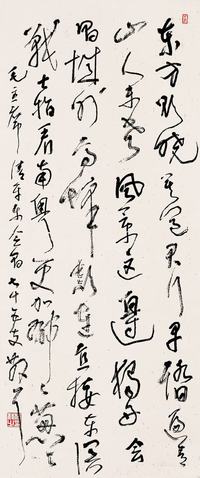 东方欲晓莫道君行早踏遍青
山人未老風景这邊独好会
昌城外高峰颠連直接东溟
戰士指看南粤更加郁々葱々
毛主席清平乐会昌七十五